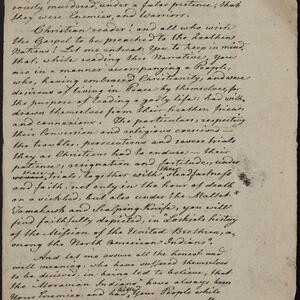 rously murdered, under a false pretence, that
they were Enemies, and Warriors.
Christian reader, and all who wish
the Gospel to be preached to the heathen
Nations! Let me entreat You to keep in mind
that, while reading this Narrative, You
are in a manner accompanying a People,
who, having embraced Christianity, and were
desirous of living in Peace by themselves, for
the purpose of leading a godly life; had with
drawn themselves from their heathen friends
and connexions. The particulars, respecting
their conversion and religious exercises
the troubles, persecutions and severe trials
they as Christians had to endure. Their
patience, resignation and fortitude, under
trials; together with their steadfastness
and faith, not only in the hour of death
on a sickbed, but also under the Mallet
Tomahawk and Scalping knife, you will
find faithfully depicted, in "Loskiels history
of the Mission of the United Brethren,
among the North American Indians".
And let me assure all the honest and
well meaning, who have suffered themselves
to be deceived, in being led to believe, that
the Moravian Indians have always been
Your Enemies, and Your People while